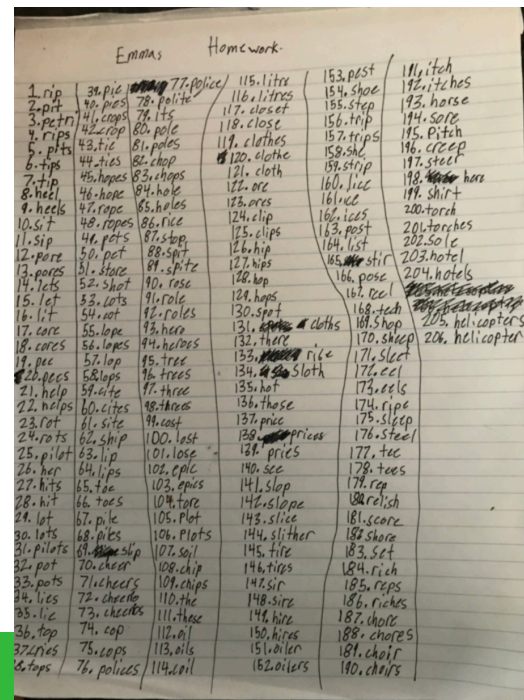 Emmas Homework.
1. rip
2. pit
3. petri
4. rips
5. pits
6. tips
7. tip
8. heel
9. heels
10. sit
11. sip
12. pore
13. pores
14. lets
15. let
16. lit
17. core
18. cores
19. pec
20. pecs
21. help
22. helps
23. rot
24. rots
25. pilot
26. her
27. hits
28. hit
29. lot
30. lots
31. pilots
32. pot
33. pots
34. lies
35. lie
36. top
37. cries
38. tops
39. pie
40. pies
41. crops
42. crop
43. tie
44. ties
45. hopes
46. hope
47. rope
48. ropes
49. pets
50. pet
51. store
52. shot
53. cots
54. cot
55. lope
56. lopes
57. lop
58. lops
59. cite
60. cites
61. site
62. ship
63. lip
64. lips
65. toe
66. toes
67. pile
68. piles
69. slip
70. cheer
71. cheers
72. cheerio
73. cheerios
74. cop
75. cops
76. polices
77. police
78. polite
79. Its
80. pole
81. poles
82. chop
83. chops
84. hole
85. holes
86. rice
87. stop
88. spit
89. spite
90. rose
91. role
92. roles
93. hero
94. heroes
95. tree
96. trees
97. three
98. threes
99. cost
100. lost
101. lose
102. epic
103. epics
104. tore
105. plot
106. Plots
107. soil
108. chip
109. chips
110. the
111. these
112. oil
113. oils
114. coil
115. litre
116. litres
117. closet
118. close
119. clothes
120. clothe
121. cloth
122. ore
123. ores
124. clip
125. clips
126. hip
127. hips
128. hop
129. hops
130. spot
131. cloths
132. there
133. rise
134. sloth
135. hot
136. those
137. price
138. prices
139. pries
140. see
141. slop
142. slope
143. slice
144. slither
145. tire
146. tires
147. sir
148. sire
149. hire
150. hires
151. oiler
152. oilers
153. pest
154. shoe
155. step
156. trip
157. trips
158. she
159. strip
160. lice
161. ice
162. ices
163. post
164. list
165. stir
166. pose
167. reel
168. tech
169. Shop
170. sheep
171. sleet
172. eel
173. eels
174. ripe
175. sleep
176. steel
177. tee
178. tees
179. rep
180. relish
181. score
182. shore
183. set
184. rich
185. reps
186. riches
187. chore
188. chores
189. choir
190. choirs
191. itch
192. itches
193. horse
194. sore
195. Pitch
196. creep
197. steer
198. here
199. shirt
200. torch
201. torches
202. sole
203. hotel
204. hotels
205. helicopters
206. helicopter